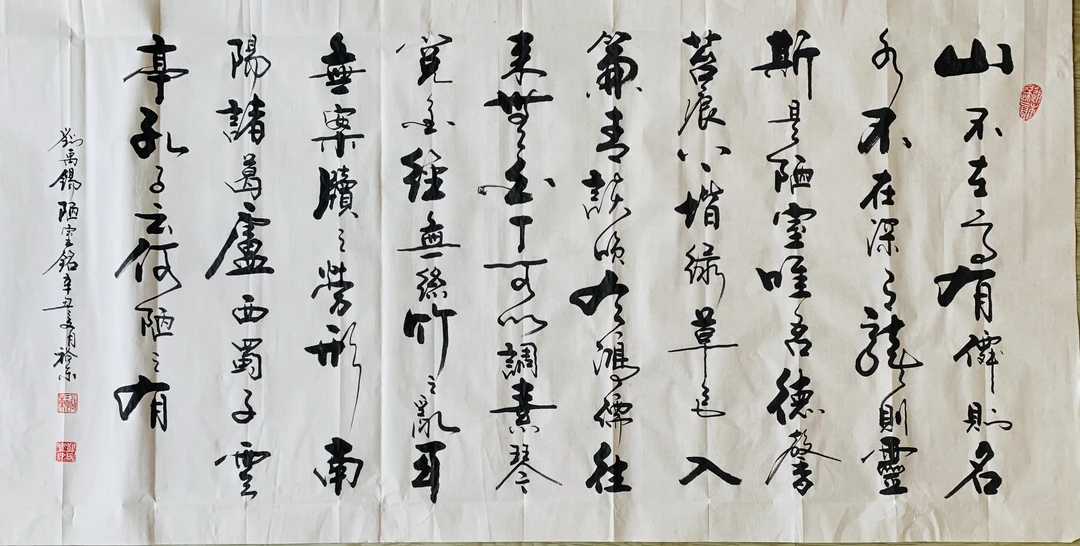 山不在高有僊則名
水不在深有龍則靈
斯是陋室唯吾德馨
苔痕上堦緑草色入
簾青談笑有鴻儒往
来無白丁可以調素琴
覽金經無絲竹之亂耳
無案牘之勞形南
陽諸葛盧西蜀子雲
亭孔子云何陋之有
劉禹錫陋室銘辛丑夏月